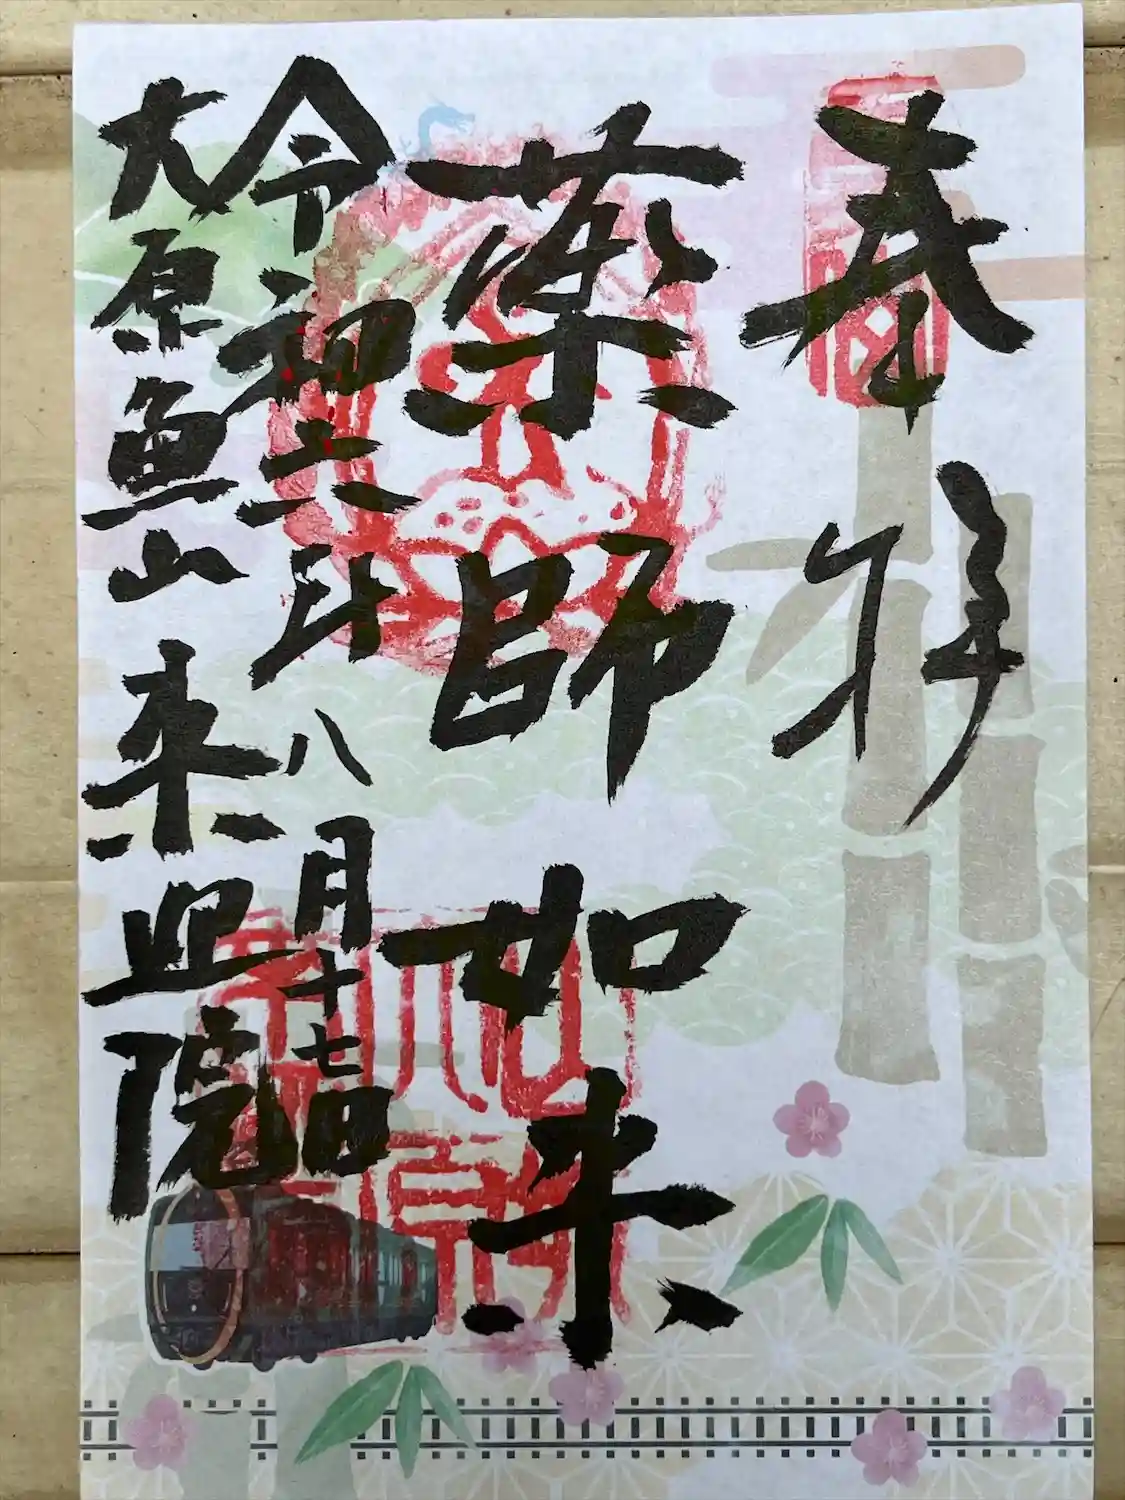 奉拝
薬師如来
令和三年八月十七日
大原魚山来迎院